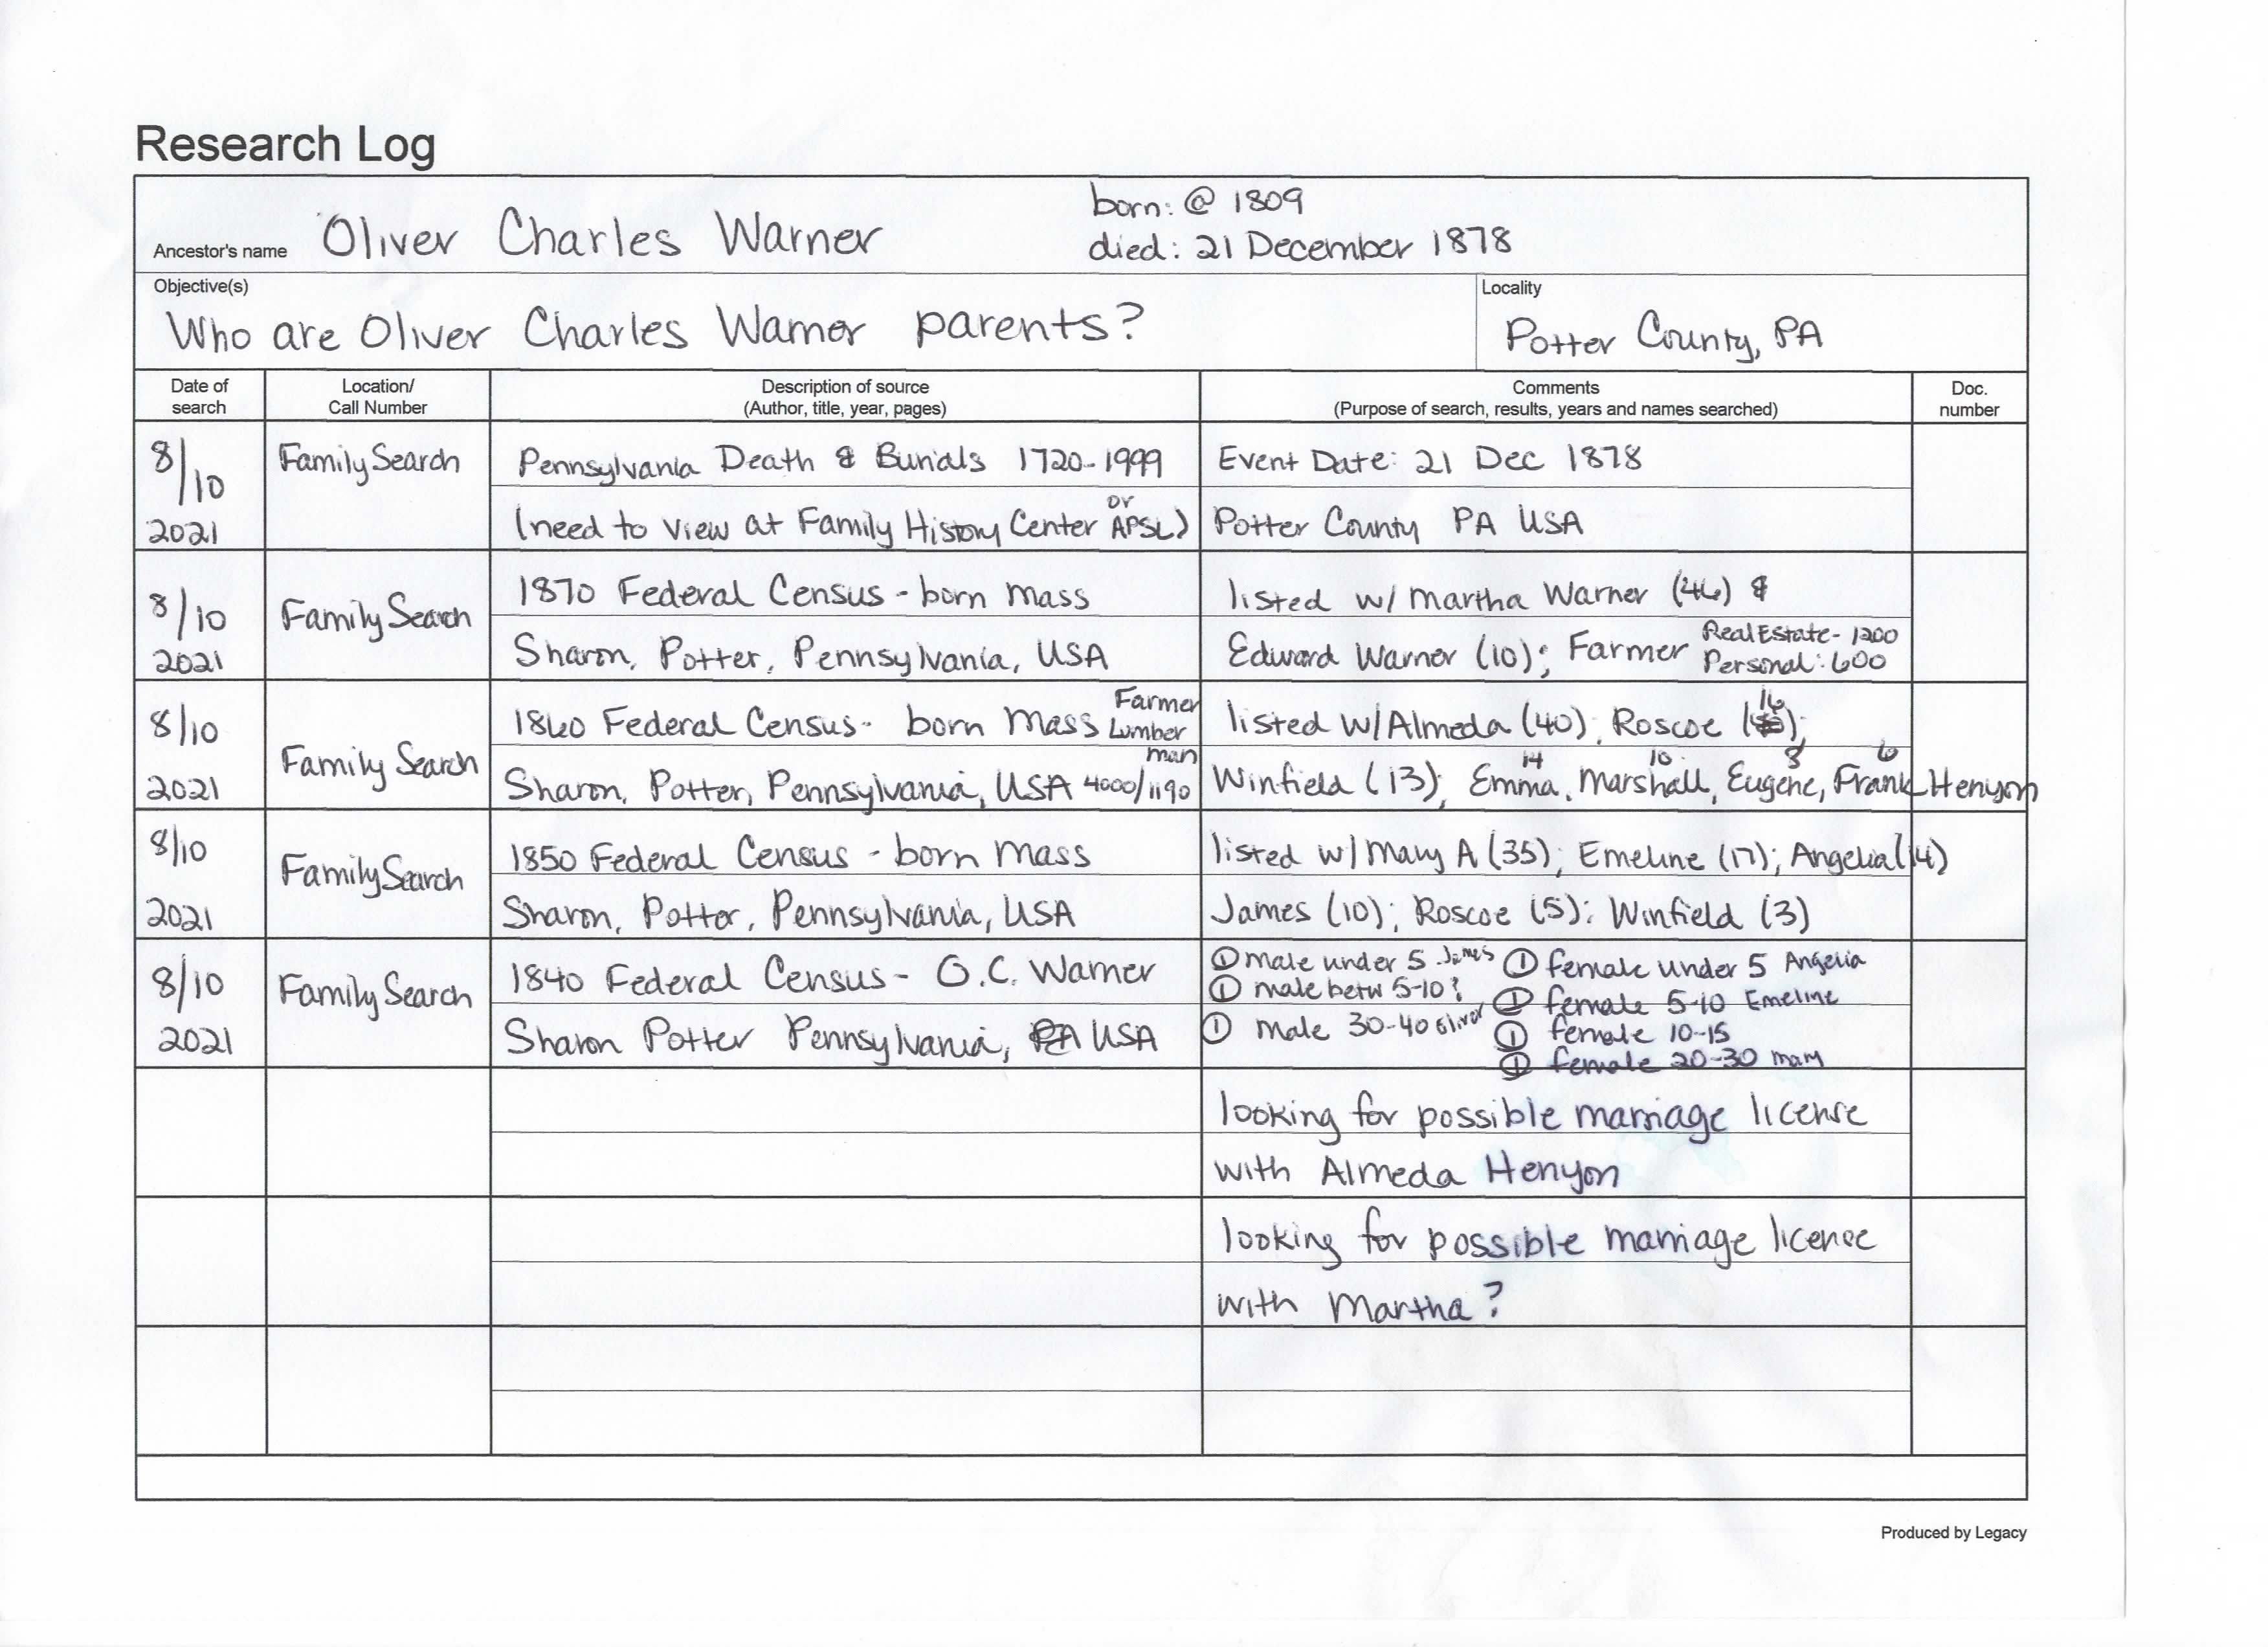 Research Log
born: @ 1809
Ancestor's name Oliver Charles Warner
died: 21 December 1878
Objective(s)
Locality
Who are Oliver Charles Warner parents?
Potter County, PA
Date of search
Location/ Call Number
Description of source (Author, title, year, pages)
Comments (Purpose of search, results, years and names searched)
Doc. number
8/10 2021
FamilySearch
Pennsylvania Death & Burials 1720-1999
(need to view at Family History Center or APSL)
Event Date: 21 Dec 1878
Potter County PA USA
8/10 2021
FamilySearch
1870 Federal Census - born Mass
Sharon, Potter, Pennsylvania, USA
listed w/ Martha Warner (46) &
Edward Warner (10); Farmer Real Estate- 1200
Personal: 600
8/10 2021
Family Search
1860 Federal Census- born Mass Farmer Lumber man
Sharon, Potter, Pennsylvania, USA 4000/1190
listed w/Almeda (40), Roscoe (16);
Winfield (13); Emma 14, Marshall 10, Eugene 8, Frank 6 Henyon
8/10 2021
FamilySearch
1850 Federal Census - born Mass
Sharon, Potter, Pennsylvania, USA
listed w/ Mary A (35); Emeline (17); Angelia (14)
James (10); Roscoe (5); Winfield (3)
8/10 2021
FamilySearch
1840 Federal Census - O.C. Warner
Sharon Potter Pennsylvania, USA
① male under 5 James
① male betw 5-10?
① male 30-40 Oliver
① female under 5 Angelia
① female 5-10 Emeline
① female 10-15
① female 20-30 Mary
looking for possible marriage license
with Almeda Henyon
looking for possible marriage licence
with Martha?
Produced by Legacy